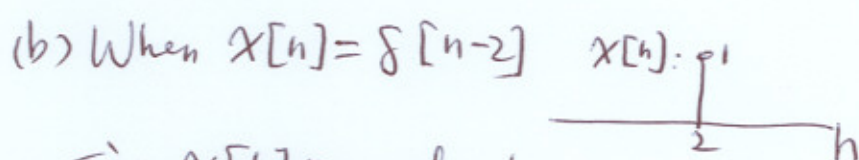 (b) When x[n]=δ[n-2] x[n]: 1
2 n